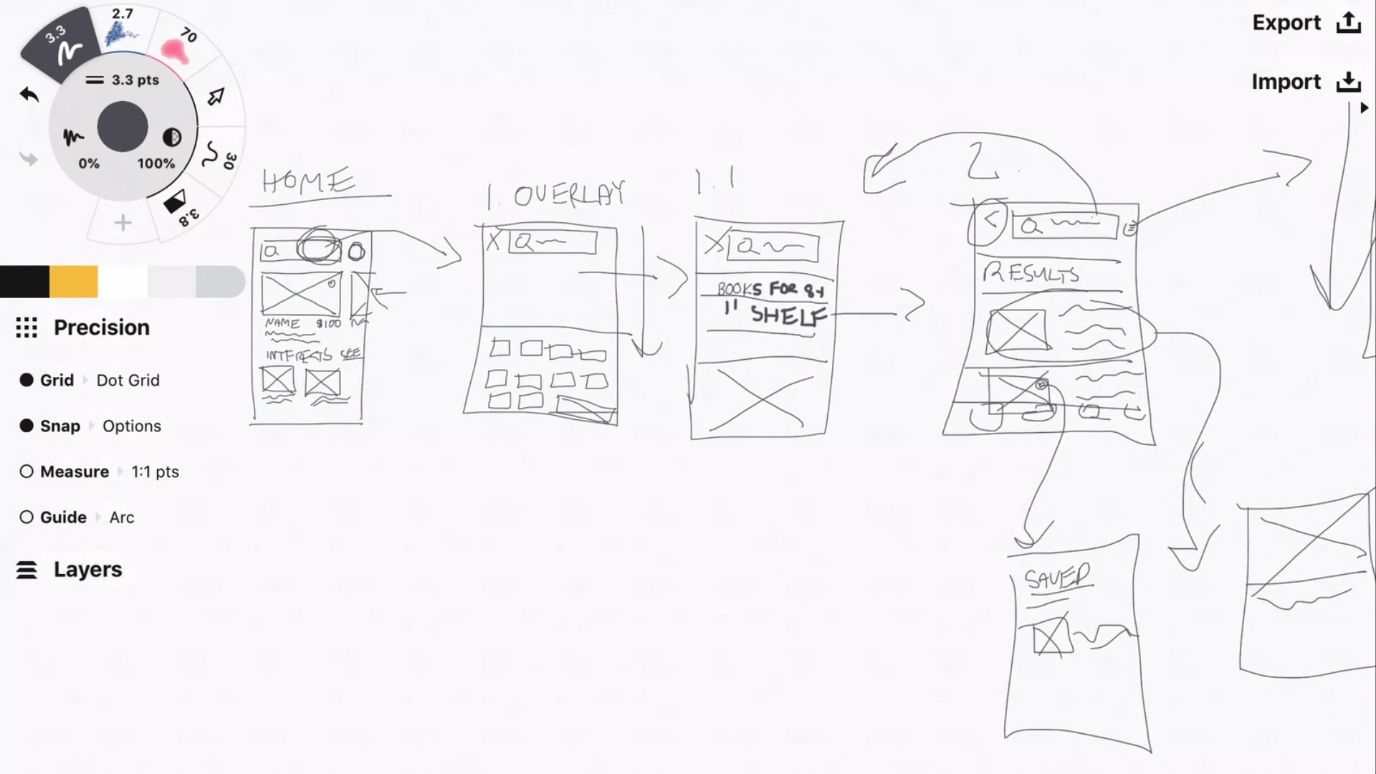 3.3
2.7
70
3.3 pts
0%
100%
30
3.8
Precision
Grid Dot Grid
Snap Options
Measure 1:1 pts
Guide Arc
Layers
Export
Import
HOME
NAME $100 NA
INTERESTS SEE
1. OVERLAY
X
1.1
X
BOOKS FOR 84
11 SHELF
2
<
RESULTS
SAVED